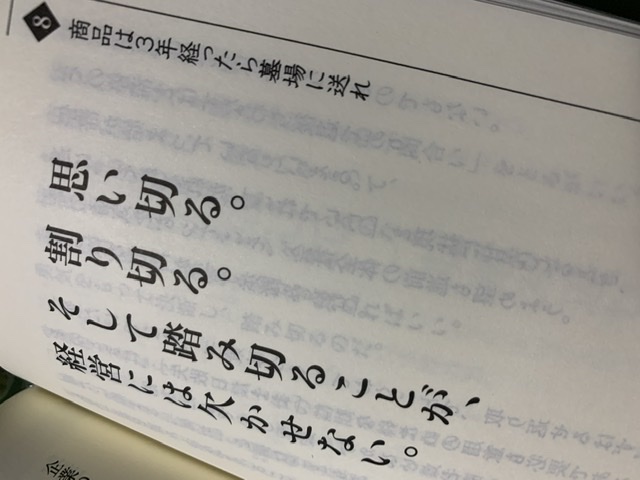 8
商品は3年経ったら墓場に送れ
思い切る。
割り切る。
そして踏み切ることが、
経営には欠かせない。